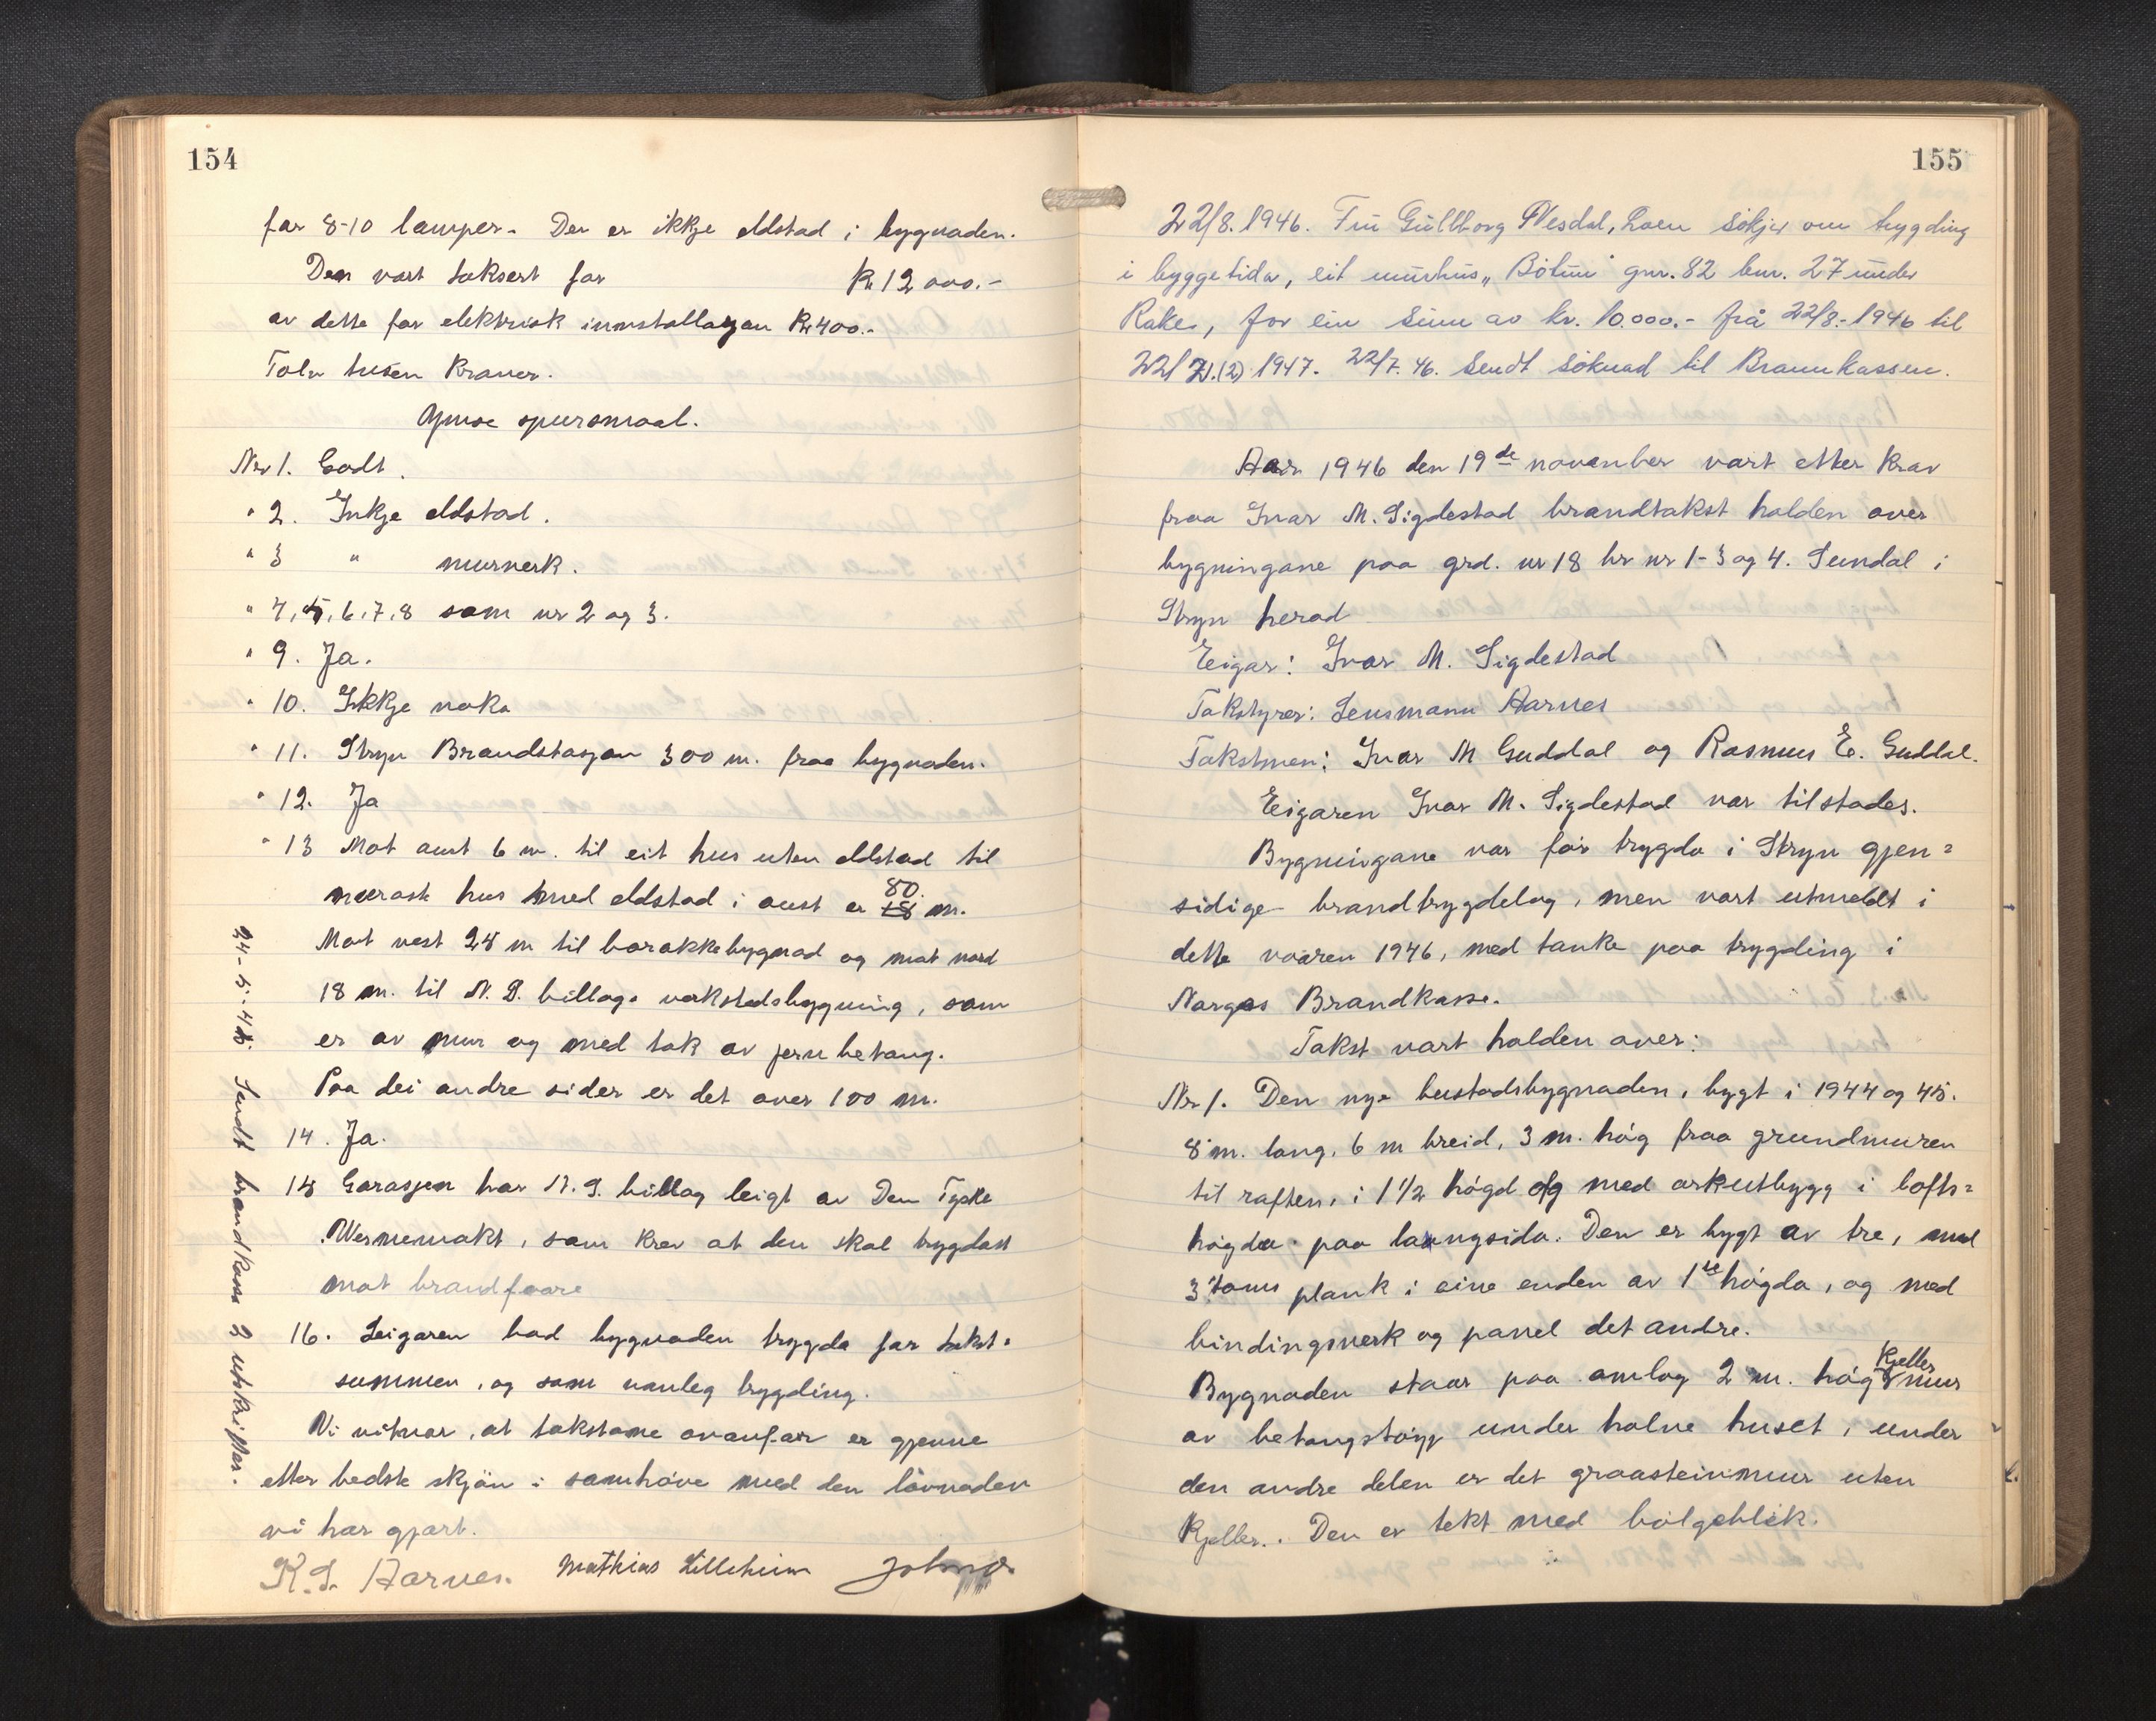 154
for 8-10 lamper. Der er ikkje eldstad i bygnaden.
Den vart taksert for Kr 12 000.-
av dette for elektrisk innstallasjon Kr 400.-
Tolv tusen Kroner.
Ymse spursmaal.
Nr 1. Godt.
" 2. Inkje eldstad.
" 3 " murverk.
" 4, 5, 6, 7, 8 som nr 2 og 3.
" 9. Ja.
" 10. Ikkje noko
" 11. Stryn Brandstasjon 300 m. fraa bygnaden.
" 12. Ja
" 13 Mot aust 6 m. til eit hus uten eldstad til
næraste hus med eldstad i aust er 80 m.
Mot vest 28 m til barakkebygnad og mot nord
18 m. til N. S. billags verkstedsbygning, som
er av mur og med tak av jernbetong.
Paa dei andre sider er det over 100 m.
14. Ja.
15 Garasjen har N. S. billag leigt av Den Tyske
Wernemakt, som krev at den skal trygdast
mot brandfaare
16. Leigaren bad bygnaden trygda for takst-
summen, og som vanleg trygding.
Vi vitnar, at takstane ovanfor er gjevne
etter bedste skjön i samhöve med den lovnaden
vi har gjort.
K. S. Aarnes. Mathias Lilleheim
24-5-45. Sendt brandkassa 2 utskrifter.
155
22/8. 1946. Fru Gullborg Nesdal, Loen sökjer om trygding
i byggetida, eit murhus „Bötun" gnr. 82 bnr. 27 under
Rake, for ein sum av kr. 10.000.- frå 22/8.-1946 til
22/2.(2) 1947. 22/7. 46. Sendt söknad til Brannkassen.
Aar 1946 den 19de november vart etter krav
fraa Ivar M. Sigdestad brandtakst halden over
bygningane paa grd. nr 18 br nr 1-3 og 4. Sundal i
Stryn herad
Eigar: Ivar M. Sigdestad
Takstyrer: Lensmann Aarnes
Takstmen: Ivar M Guddal og Rasmus E. Guddal.
Eigaren Ivar M. Sigdestad var tilstades.
Bygningane var för trygda i Stryn gjen-
sidige brandtrygdelag, men vart utmeldt i
dette vaaren 1946, med tanke paa trygding i
Norges Brandkasse.
Takst vart halden over:
Nr 1. Den nye bustadsbygnaden, bygt i 1944 og 45.
8 m. lang, 6 m breid, 3 m. hög fraa grundmuren
til raften, i 1 1/2 högd og med arkutbygg i lofts-
högda paa langsida. Den er bygt av tre, med
3" toms plank i eine enden av 1ste högda, og med
bindingsverk og panel det andre.
Bygnaden staar paa omlag 2 m. hög Kjellermur
av betongstöyp under halve huset, under
den andre delen er det graasteinmur uten
Kjeller. Den er tekt med bölgeblik.